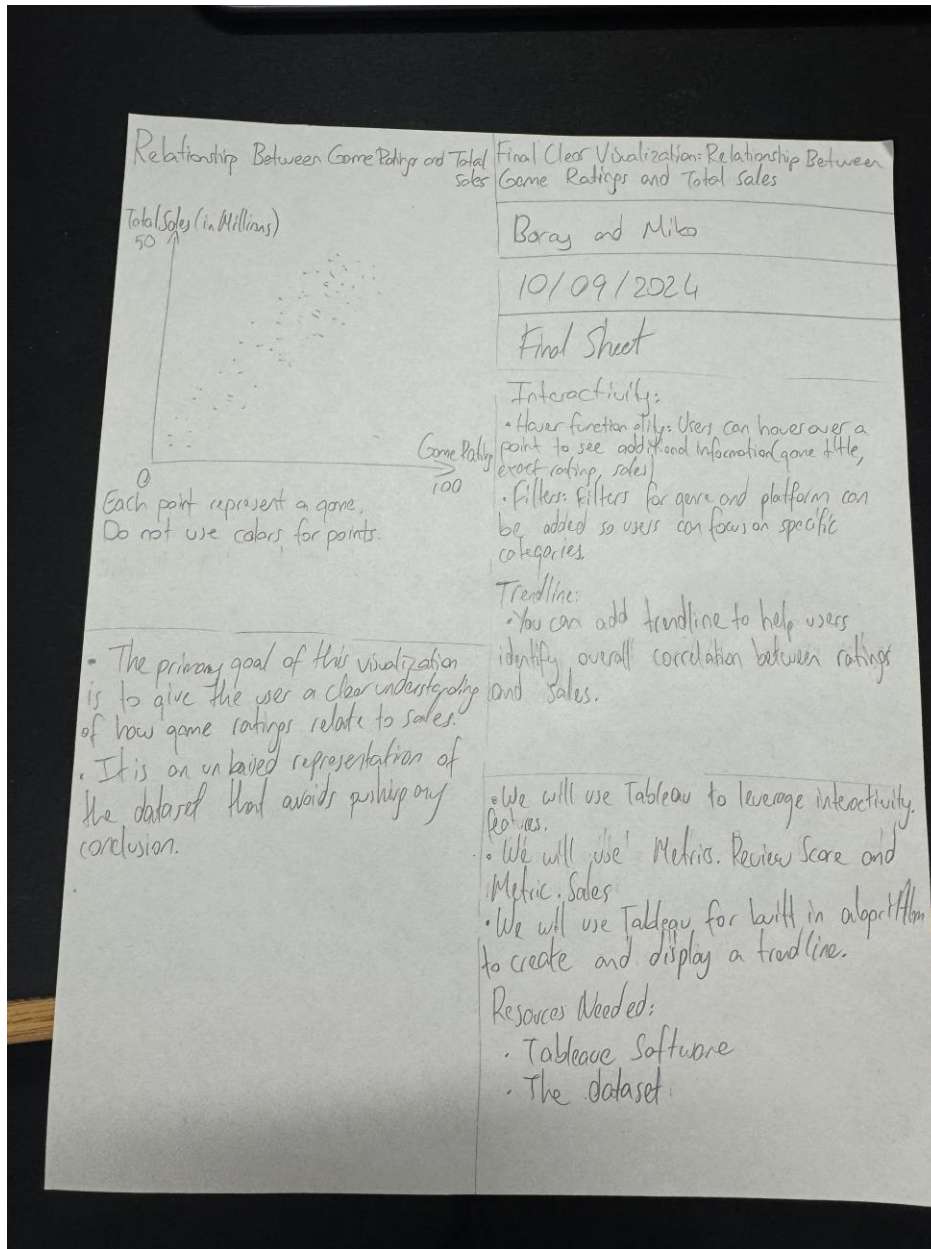 Relationship Between Game Ratings and Total
Sales
Total Sales (in Millions)
50
0
Game Rating
100
Each point represent a game.
Do not use colors for points.
• The primary goal of this visualization
is to give the user a clear understanding
of how game ratings relate to sales.
• It is an unbaised representation of
the dataset that avoids pushing any
conclusion.
Final Clear Visualization: Relationship Between
Game Ratings and Total Sales
Boray and
10/09/2024
Final Sheet
Interactivity:
• Hover function ality: Users can hover over a
point to see additional information (game title,
exact rating, sales)
• Filters: Filters for genre and platform can
be added so users can focus on specific
categories.
Trendline:
• You can add trendline to help users
identify overall correlation between ratings
and sales.
• We will use Tableau to leverage interactivity.
features.
• We will use Metrics. Review Score and
Metric. Sales
• We will use Tableau for built in algorithm
to create and display a trendline.
Resources Needed:
• Tableaue Software
• The dataset